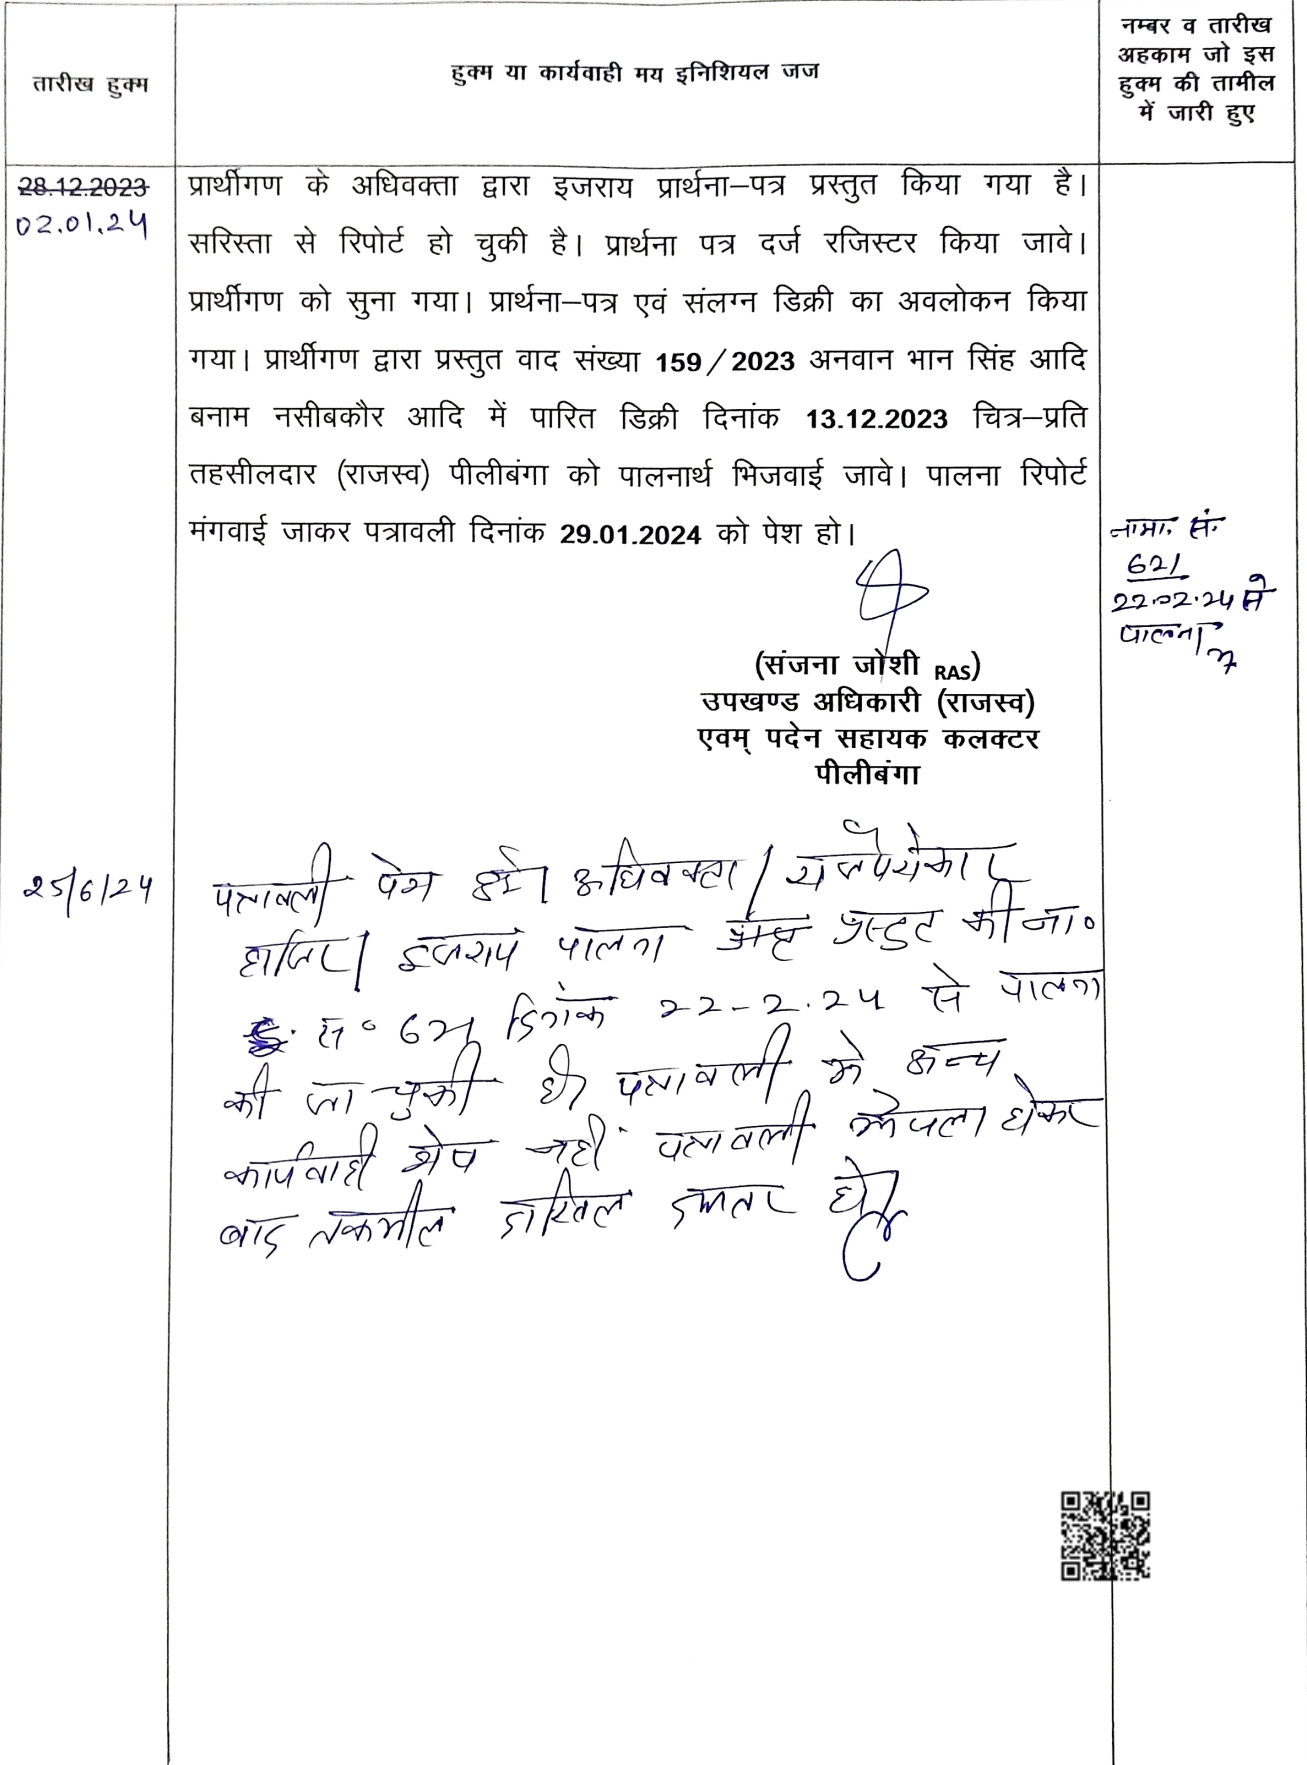 तारीख हुक्म
हुक्म या कार्यवाही मय इनिशियल जज
नम्बर व तारीख
अहकाम जो इस
हुक्म की तामील
में जारी हुए
28.12.2023
02.01.24
प्रार्थीगण के अधिवक्ता द्वारा इजराय प्रार्थना–पत्र प्रस्तुत किया गया है।
सरिस्ता से रिपोर्ट हो चुकी है। प्रार्थना पत्र दर्ज रजिस्टर किया जावे।
प्रार्थीगण को सुना गया। प्रार्थना–पत्र एवं संलग्न डिक्री का अवलोकन किया
गया। प्रार्थीगण द्वारा प्रस्तुत वाद संख्या 159/2023 अनवान भान सिंह आदि
बनाम नसीबकौर आदि में पारित डिक्री दिनांक 13.12.2023 चित्र–प्रति
तहसीलदार (राजस्व) पीलीबंगा को पालनार्थ भिजवाई जावे। पालना रिपोर्ट
मंगवाई जाकर पत्रावली दिनांक 29.01.2024 को पेश हो।
नामा. सं.
621
22.02.24 से
पालना
(संजना जोशी RAS)
उपखण्ड अधिकारी (राजस्व)
एवम् पदेन सहायक कलक्टर
पीलीबंगा
25/6/24
पत्रावली पेश हुई। अधिवक्ता / राजपैरोकार
हाजिर। इजराय पालना प्रस्तुट की ना०
स० 621 दिनांक 22-2-24 से पालना
की जा चुकी है। पत्रावली मे अन्य
कार्यवाही शेष नहीं पत्रावली फैसला होकर
बाद तकमील दाखिल दफ्तर हो।